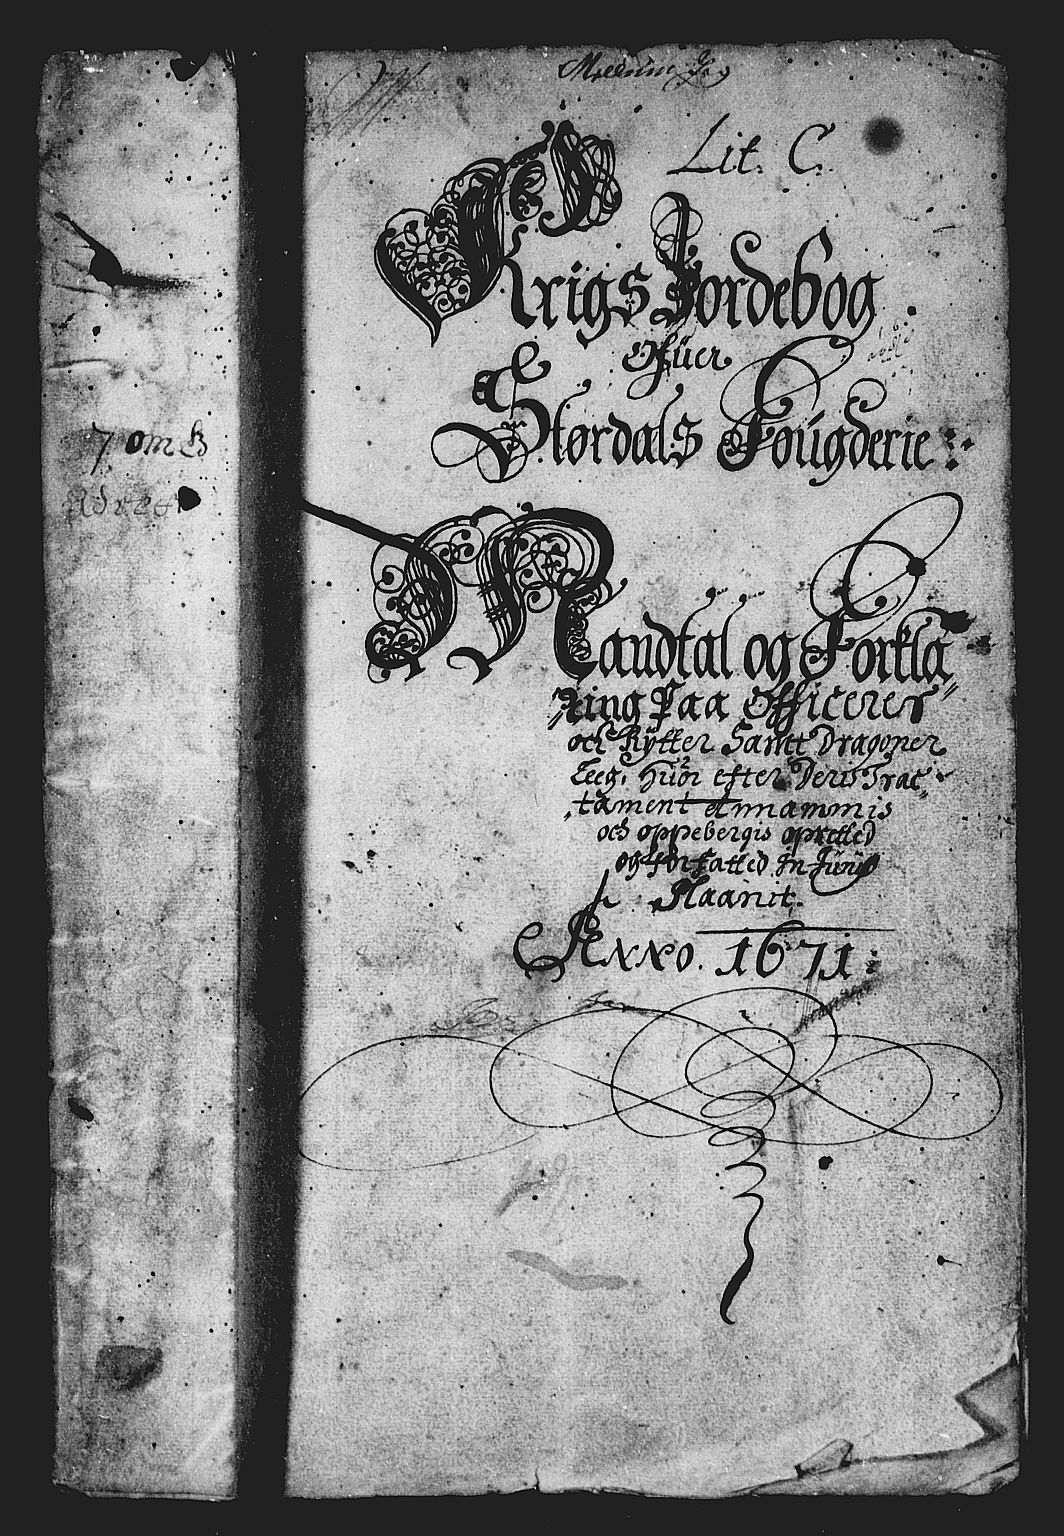 Lit. C.
Krigs Jordebog
offuer
Størdals Fougderie :
Mandtal og Forkla
ring Paa Officerer
och Rytter Sampt Dragoner
Leeg. Huor efter Deris Trac
tament annammis
och oppebergis opretted
og forfatted In Junij
Maanit.
Anno. 1671 :